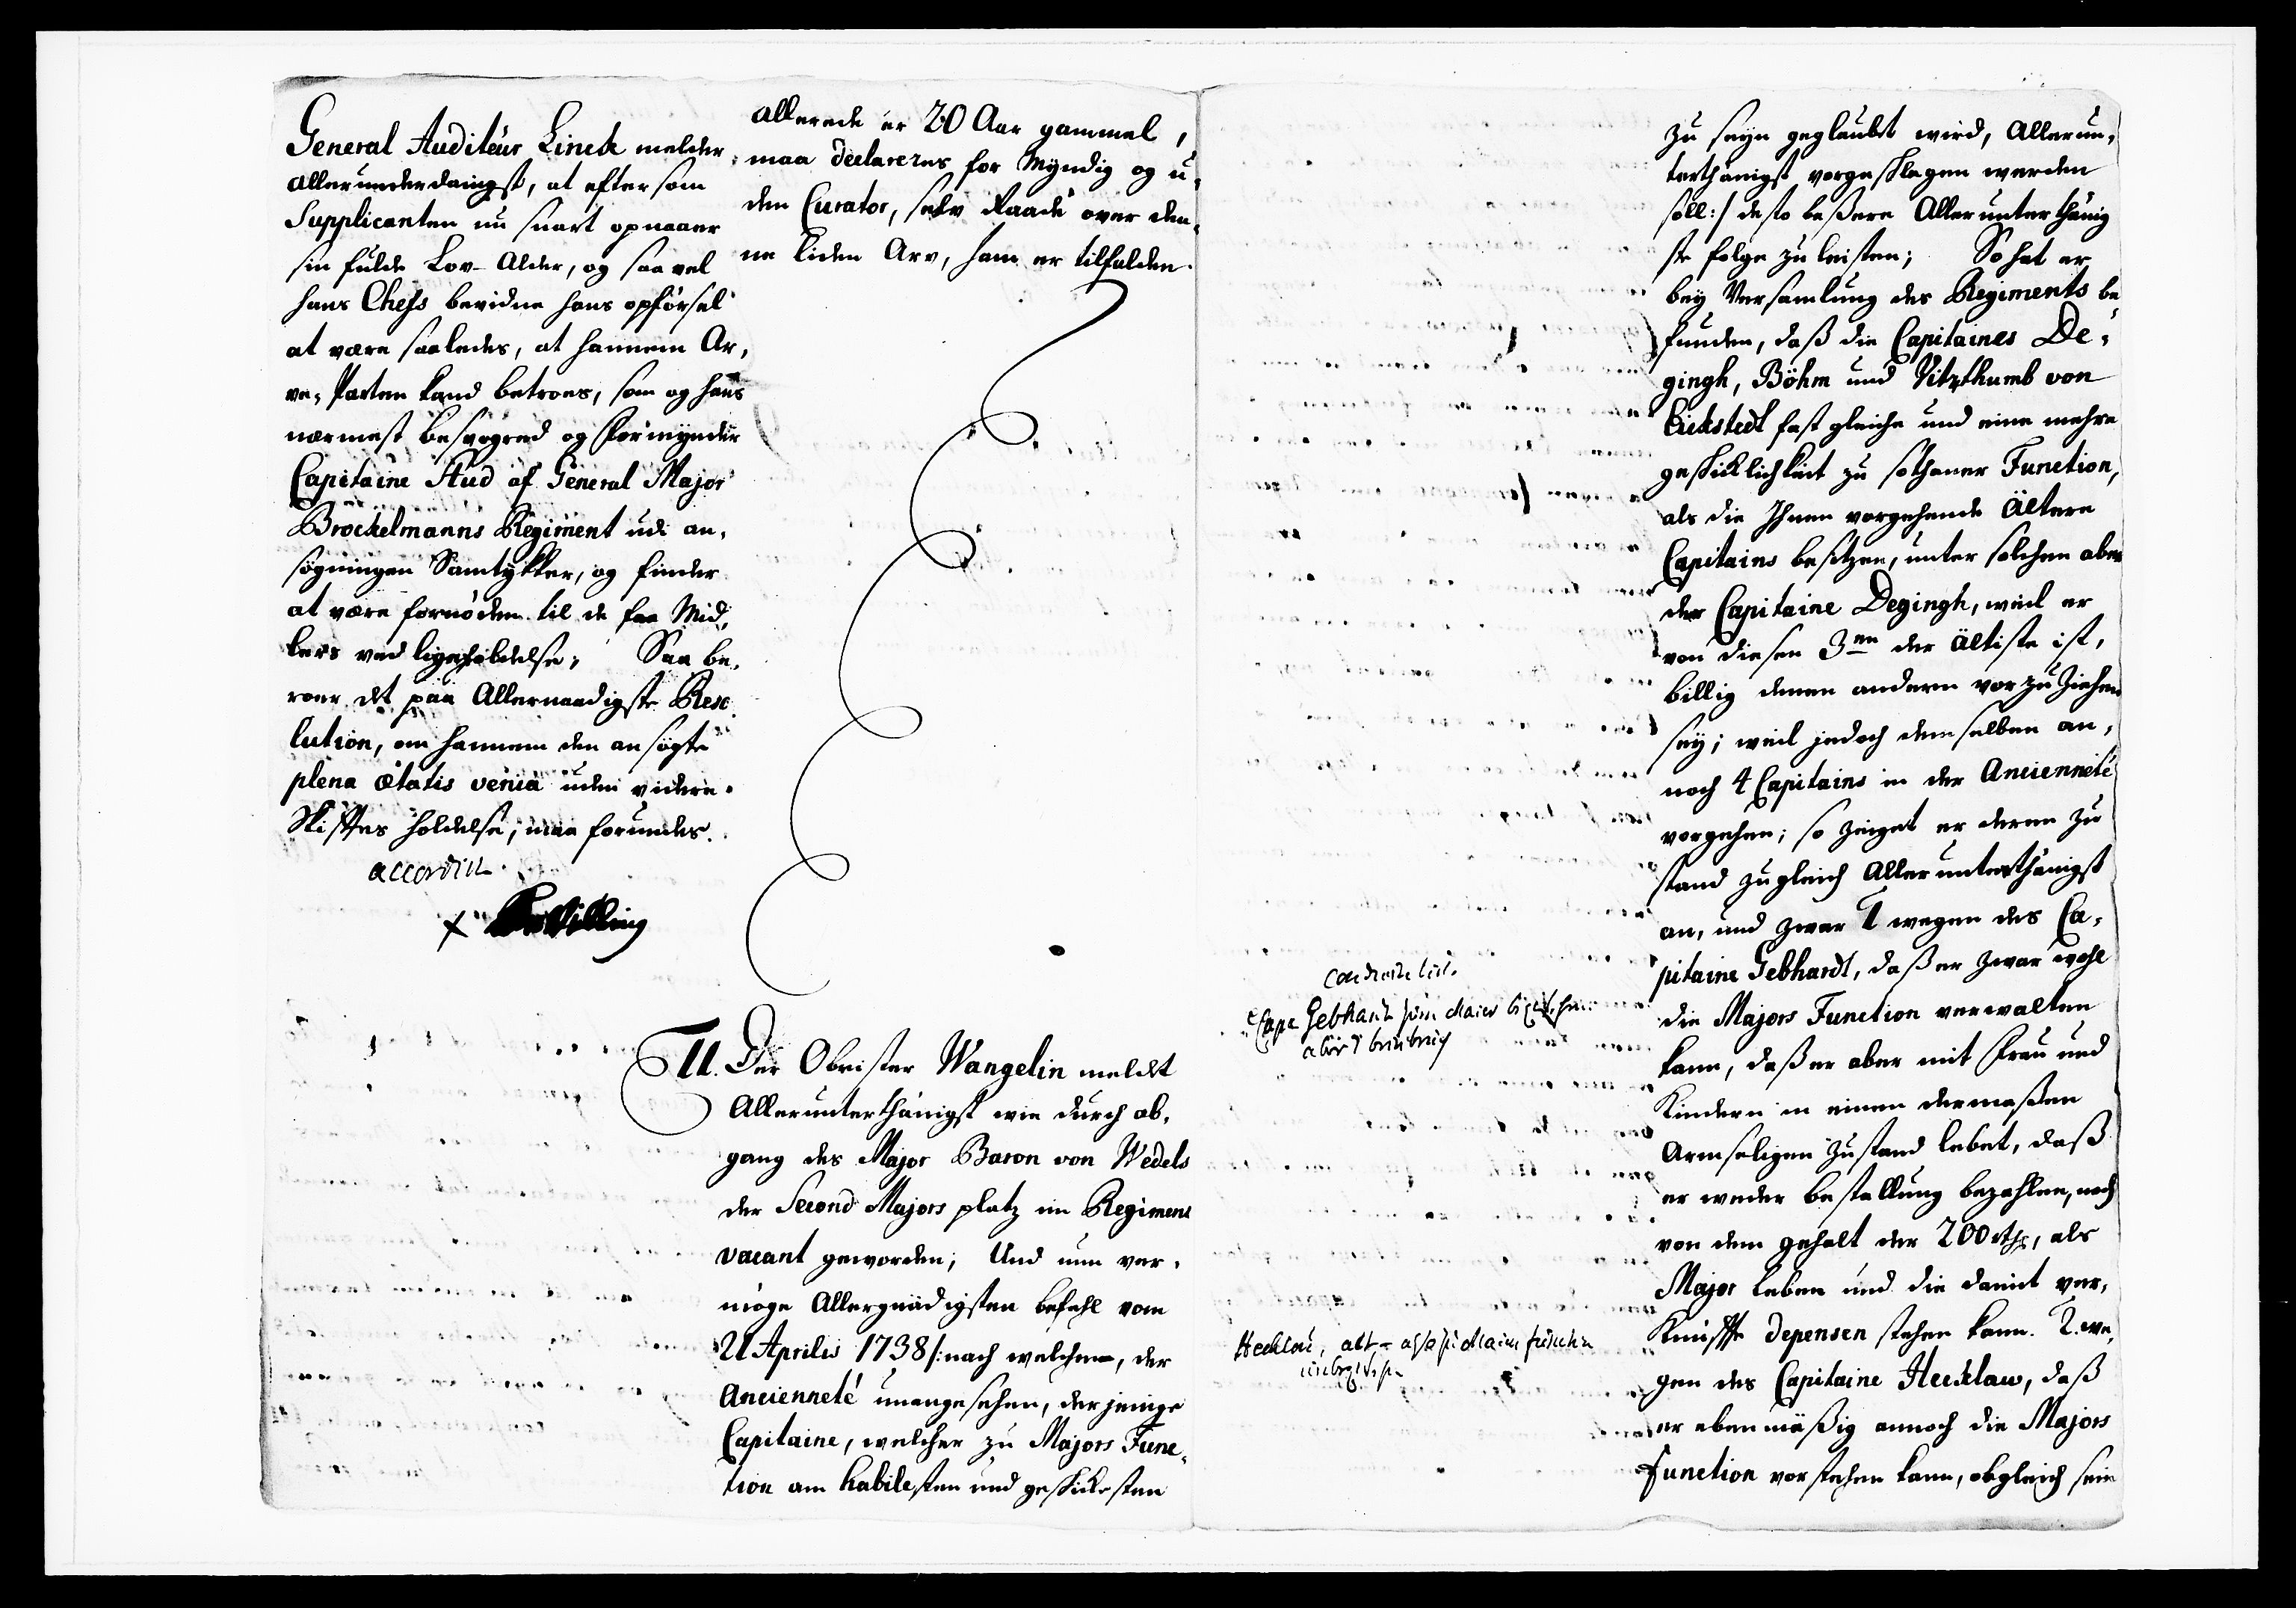 General Auditeur Linck melder
allerunderdanigst, at eftersom
Supplicanten nu snart opnaaer
sin fulde Lov-Alder, og saavel
hans Chefs bevidne hans opförsel
at være saaledes, at hannem Ar,
ve-Parten kand betroes, som og hans
nærmest besvogred og Formynder
Capitaine Hud af General Major
Brockelmanns Regiment udi an,
søgningen Samtykker, og finder
at være fornöden til de faa Mid,
lers ved ligeholdelse; Saa be,
roer det paa Allernaadigste Reso
lution, om hannem den ansögte
plena ætatis venia uden videre
Skifftes holdelse, maa forundes.
accordirt
x Bevilling
allerede er 20 Aar gammel,
maa declareres for Myndig og u,
den Curator, selv Raade over den,
ne liden Arv, ham er tilfalden.
11. Der Obrister Wangelin meldt
Allerunterthänigst wie durch ab,
gang des Major Baron von Wedels
der Second Majors platz im Regiment
vacant geworden; Und nun ver,
möge Allergnädigsten befehl vom
21 Aprilis 1738 /: nach welchem, der
Ancienneté unangesehen, derjenige
Capitaine, welcher zu Majors Func,
tion am habilesten und geschicktesten
zu seyn geglaubt wird, Allerun,
terthänigst vorgeschlagen werden
soll :/ desto beßere Allerunterthänig
ste folge zu leisten; So hat er
bey Versamlung des Regiments be
funden, daß die Capitaines De,
gingh, Böhm und Vitzthumb von
Eickstedt fast gleiche und eine mehre
geschicklichkeit zu sothaner Function,
als die Ihnen vorgehende Ältere
Capitains besitzen, unter solchen aber
der Capitaine Degingh, weil er
von diesen 3en der Älteste ist,
billig denen andern vorzuziehen
sey; weil jedoch demselben an,
noch 4 Capitains in der Ancienneté
vorgehen; so zeiget er deren Zu
stand zugleich Allerunterthänigst
an, und zwar 1 wegen des Ca,
pitaine Gebhardt, daß er zwar wohl
die Majors Function verwalten
kann, daß er aber mit Frau und
Kindern in einen dermaßen
Armseligen Zustand lebet, daß
er weder bestallung bezahlen, noch
von dem gehalt der 200 rthr, als
Major leben und die damit ver,
Knüpffte depensen stehen kann. 2. we,
gen des Capitaine Hecklaw, daß
er ebenmäßig annoch die Majors
Function vorstehen kann, obgleich sein
Capt Gebhardt zum Maior
Hecklau, alt